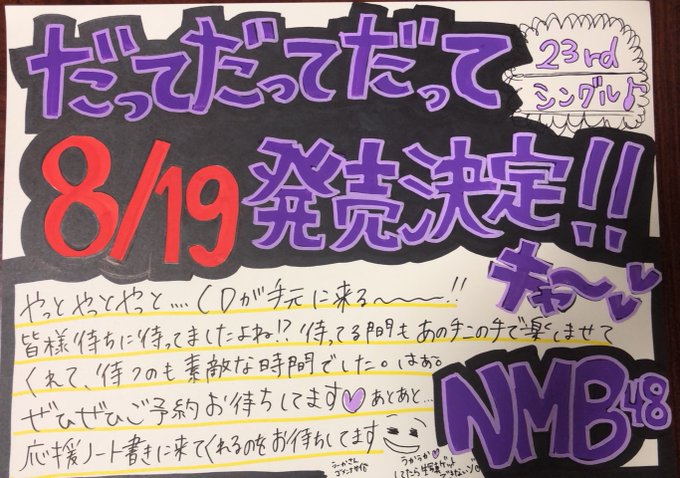 だってだってだって
23rd
シングル♪
8/19発売決定!!
キャ〜♥♥
やっとやっとやっと....CDが手元に来る〜〜〜!!
皆様待ちに待ってましたよね!?待ってる間もあの手この手で楽しませて
くれて、待つのも素敵な時間でした。はぁ。
ぜひぜひご予約お待ちしてます♥あとあと...
応援ノート書きに来てくれるのをお待ちしてます
NMB48
うかうか♡
してたら生写真ゲット
できないゾ